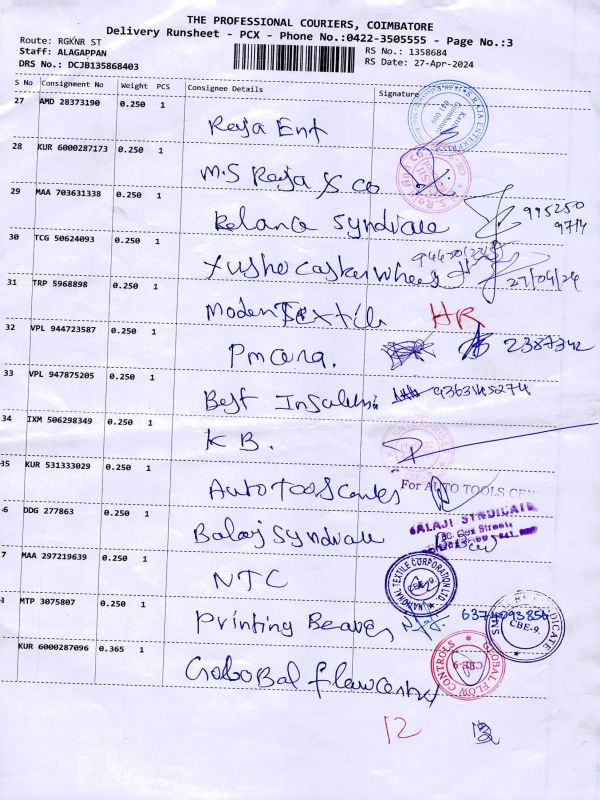 THE PROFESSIONAL COURIERS, COIMBATORE
Delivery Runsheet - PCX - Phone No.:0422-3505555 - Page No.:3
Route: RGKNR ST
Staff: ALAGAPPAN
DRS No.: DCJB135868403
RS No.: 1358684
RS Date: 27-Apr-2024
S No Consignment No Weight PCS Consignee Details Signature
27 AMD 28373190 0.250 1
Raja Ent
28 KUR 6000287173 0.250 1
M.S Raja & Co
29 MAA 703631338 0.250 1
Syndicate 995250
9714
30 TCG 50624093 0.250 1
27/04/24
31 TRP 5968898 0.250 1
Modern Textile HR
32 VPL 944723587 0.250 1
2387342
33 VPL 947875205 0.250 1
Best
34 IXM 506298349 0.250 1
K B.
35 KUR 531333029 0.250 1
Auto Tools Centre For AUTO TOOLS CEN
6 DDG 277863 0.250 1
Balaji Syndicate BALAJI SYNDICATE
7 MAA 297219639 0.250 1
NTC NATIONAL TEXTILE CORPORATION LTD CBE-9.
MTP 3075807 0.250 1
Printing 6374093850 CBE-9.
KUR 6000287096 0.365 1
Global Flow Control GLOBAL FLOW CONTROLS CBE-9
12